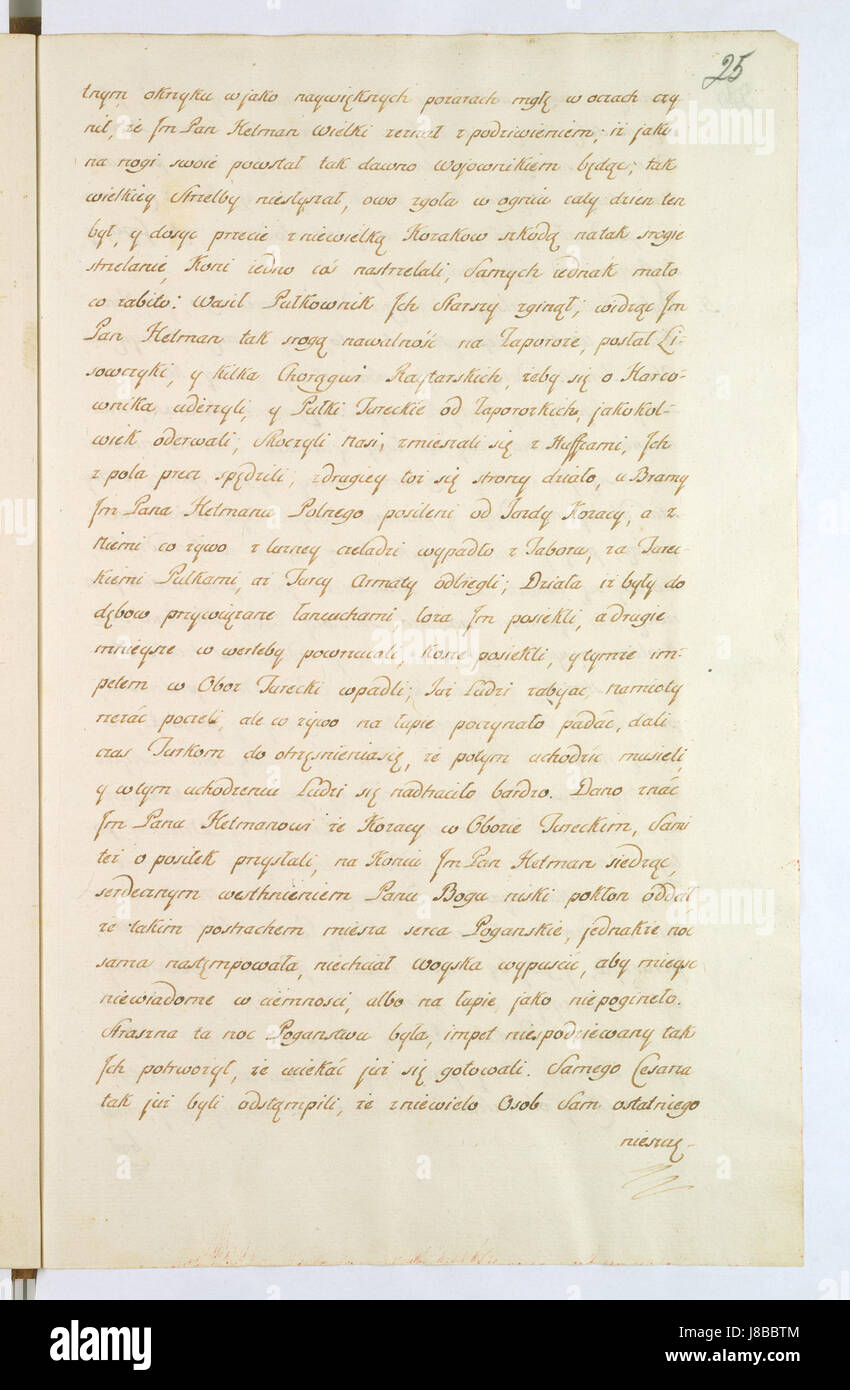 25
tnym okrzyku w jako naywiększych pozarach mgłę w oczach czy
nił, że Jm Pan Hetman Wielki zeznał z podziwieniem; iż jako
na nogi swoie powstał tak dawno Wojownikiem będąc; tak
wielkiey Strzelby niesłyszał, owo zgoła w ogniu cały dzien ten
był, y dosyc przecie z niewielką Kozakow szkodą na tak srogie
strzelanie, Koni iedno coś nastrzelali, Samych iednak mało
co zabito: Wasil Pułkownik Jch Starszy zginął; widząc Jm
Pan Hetman tak srogą nawalność na Zaporoże, posłał Li-
sowczyki, y kilka Chorągwi Raytarskich, żeby się o Harco-
wnika uderzyli, y Pułki Tureckie od Zaporozkich, jakokol-
wiek oderwali; Skoczyli Nasi, zmieszali się z Huffami, Jch
z pola precz spędzili; z drugiey toż się strony działo, u Bramy
Jm Pana Hetmana Polnego posileni od Kozacy, a z
Niemi co żywo z luzney czeladzi wypadło z Taboru, za Turec-
kiemi Pułkami, aż Turcy Armaty odbiegli; Działa iż były do
dębow przywiązane łancuchami łoża Jm posiekli, a drugie
mnieysze w werteby powrucali, Konie posiekli, y tymże im-
petem w Oboz Turecki wpadli; Już Ludzi zabyac, Namioty
rzezać poczeli, ale co żywo na łupie poczynało padać, dali
czas Turkom do otrzęśnieniasię, że potym uchodzić musieli,
y w tym uchodzeniu Ludzi się nadtraciło bardzo. Dano znać
Jm Panu Hetmanowi że Kozacy w Obozie Tureckim, Sami
też o posiłek przysłali, na Koniu Jm Pan Hetman siedząc,
serdecznym westhnieniem Panu Bogu niski pokłon oddał
że takim postrachem miesza serca Poganskie, jednakże noc
sama nastęmpowała, niechciał Woyska wypuscić, aby mieysc
niewiadome w ciemnosci, albo na łupie jako niepoginęło.
Straszna ta noc Poganstwu była, impet niespodziewany tak
Jch potrwożył, że uciekać już się gotowali. Samego Cesarza
tak już byli odstąmpili, że z niewielo Osob Sam ostatniego
nieszczę-
alamy
Image ID: J8BBTM
www.alamy.com